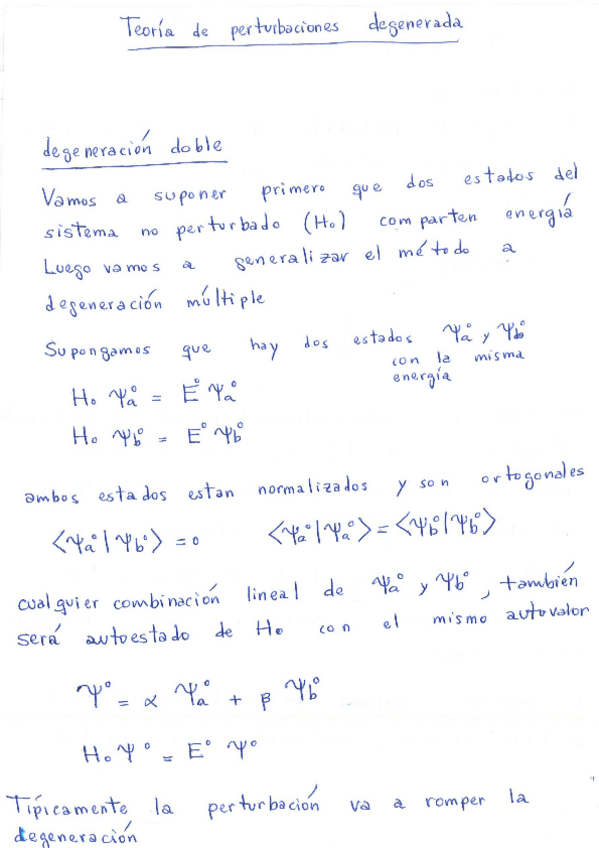 Teoría de perturbaciones degenerada
degeneración doble
Vamos a suponer primero que dos estados del
sistema no perturbado (H₀) comparten energía
Luego vamos a generalizar el método a
degeneración múltiple
Supongamos que hay dos estados Ψa° y Ψb°
con la misma
energía
H₀ Ψa° = E° Ψa°
H₀ Ψb° = E° Ψb°
ambos estados estan normalizados y son ortogonales
⟨Ψa°|Ψb°⟩ = 0 ⟨Ψa°|Ψa°⟩ = ⟨Ψb°|Ψb°⟩
cualquier combinación lineal de Ψa° y Ψb°, también
será autoestado de H₀ con el mismo autovalor
Ψ° = α Ψa° + β Ψb°
H₀ Ψ° = E° Ψ°
Típicamente la perturbación va a romper la
degeneración